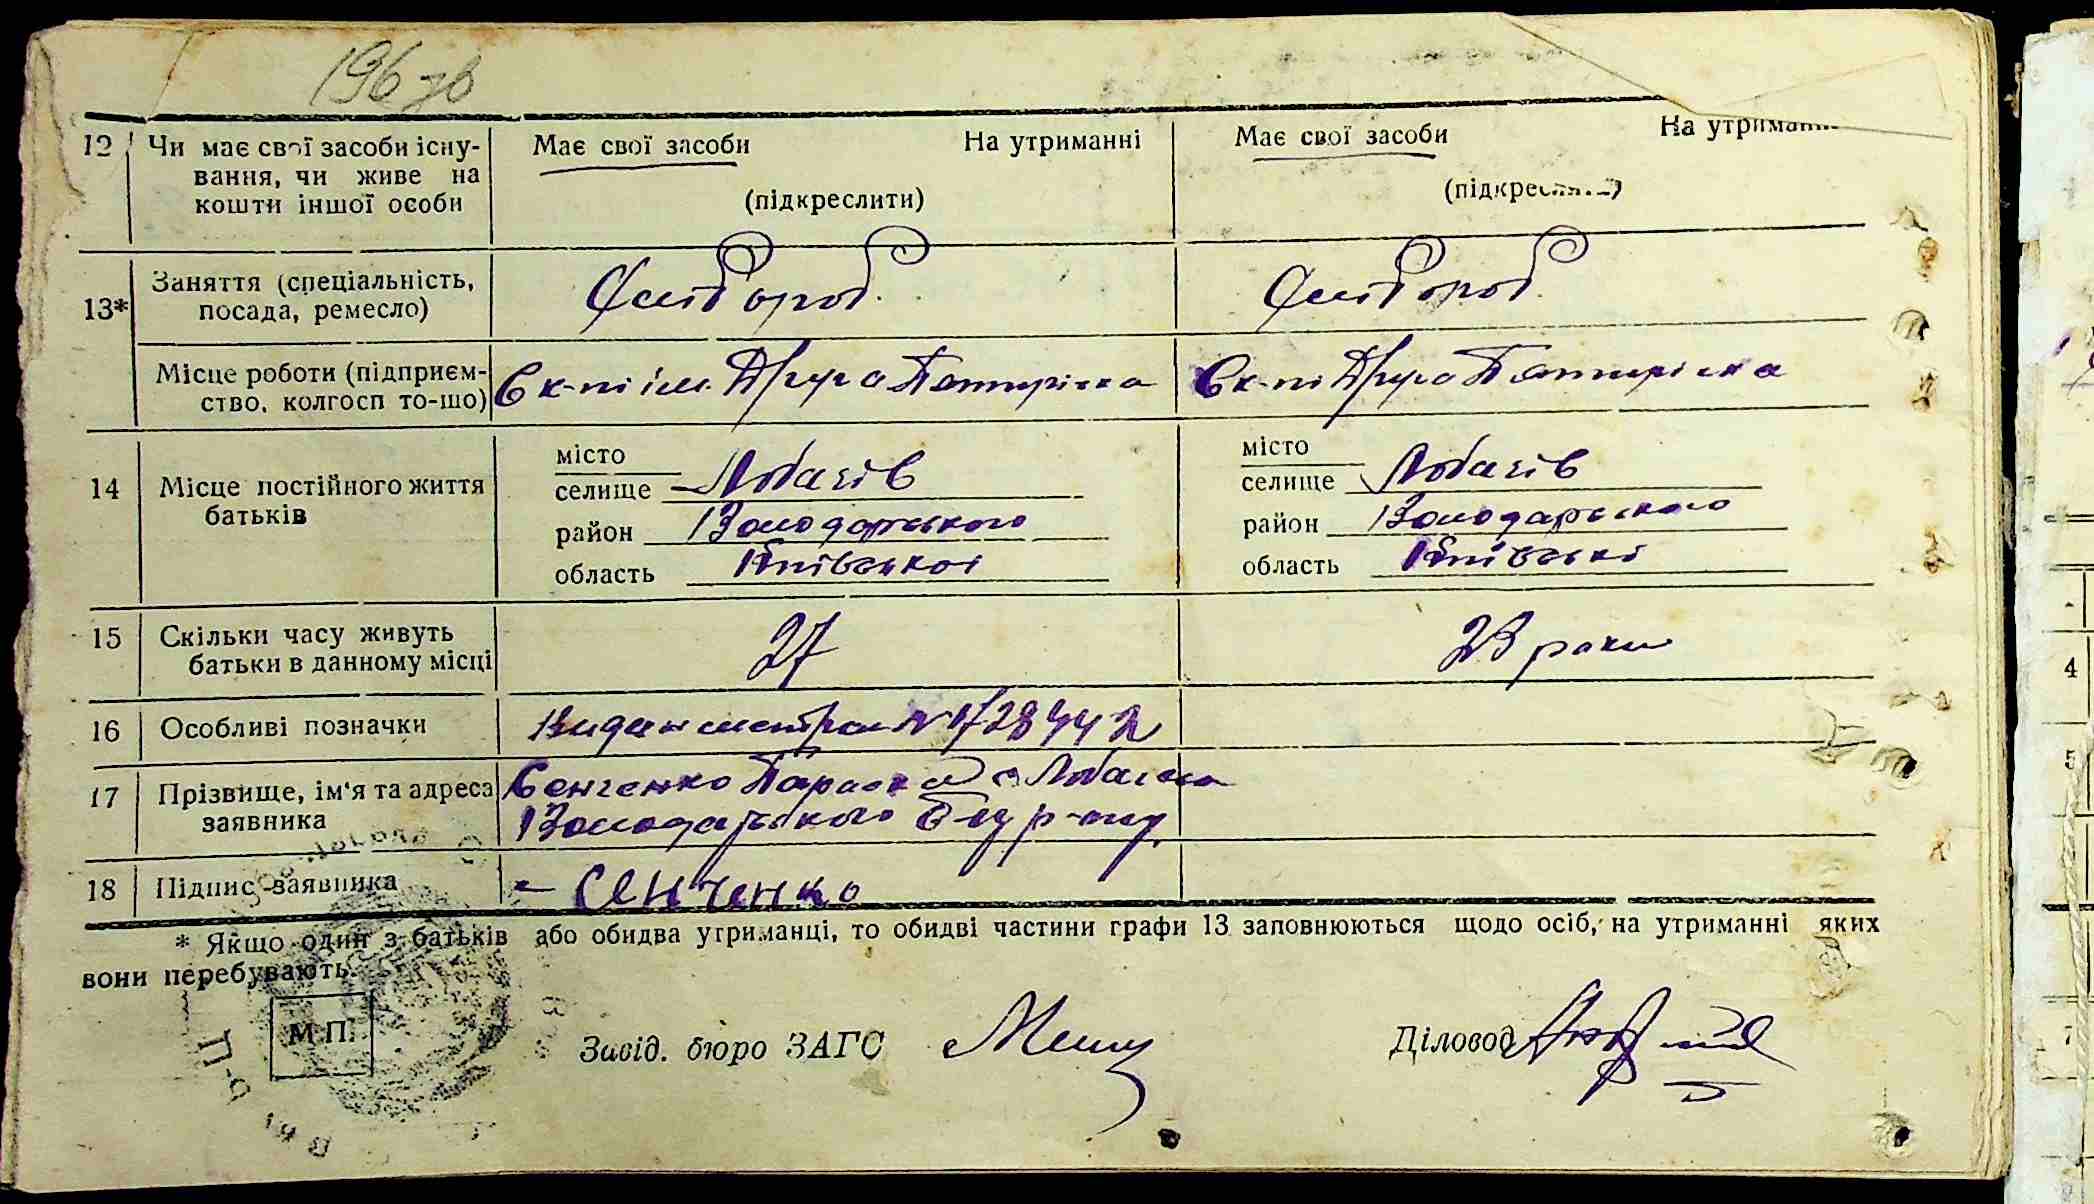 196 зв
12 Чи має свої засоби існу- Має свої засоби На утриманні Має свої засоби На утриманні
вання, чи живе на
кошти іншої особи (підкреслити) (підкреслити)
13* Заняття (спеціальність,
посада, ремесло) Хлібороб. Хлібороб.
Місце роботи (підприєм- Єк-пі ім. Друга Пятирічка Єк-пі Друга Пятирічка
ство, колгосп то-що)
14 Місце постійного життя
батьків
місто місто
селище Лобачів селище Лобачів
район Володарського район Володарського
область Київської область Київські
15 Скільки часу живуть
батьки в данному місці 27 23 роки
16 Особливі позначки Видан метрик №
17 Прізвище, ім'я та адреса Сенченко Параска с Лобачева
заявника Володарського р-ну
18 Підпис заявника – Сенченко
* Якщо один з батьків або обидва утриманці, то обидві частини графи 13 заповнюються щодо осіб, на утриманні яких
вони перебувають.
М.П.
Завід. бюро ЗАГС Діловод
4
5
7